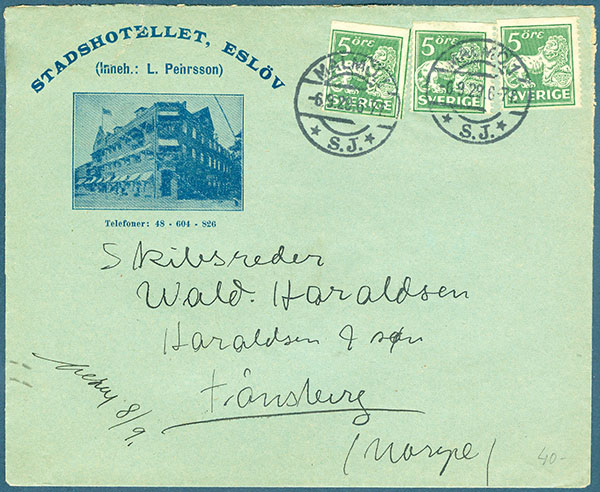 STADSHOTELLET, ESLÖV
(Inneh.: L. Pehrsson)
Telefoner: 48 - 604 - 826
5 ÖRE
SVERIGE
5 ÖRE
SVERIGE
5 ÖRE
SVERIGE
MALMÖ 1
-6.9.29
S.J.
MALMÖ 1
6.9.29
S.J.
Skibsreder
Wald. Haraldsen
Haraldsen & søn
Tönsberg
(Norge)
8/9.
40-